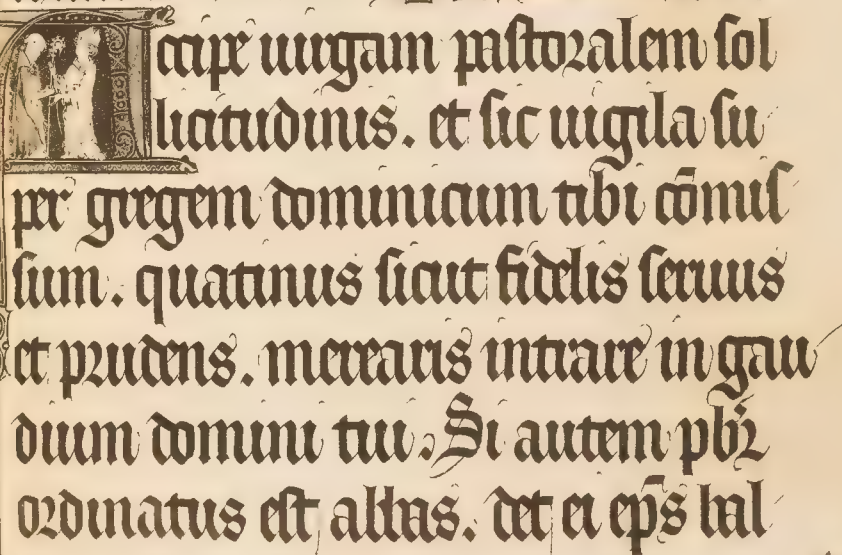 Accipe uirgam pastoralem sol
licitudinis. et sic uigila su
per gregem dominicum tibi cōmis
sum. quatinus sicut fidelis seruus
et prudens. merearis intrare in gau
dium domini tui. Si autem pbr̄
ordinatus est abbas. det ei ep̄s bal